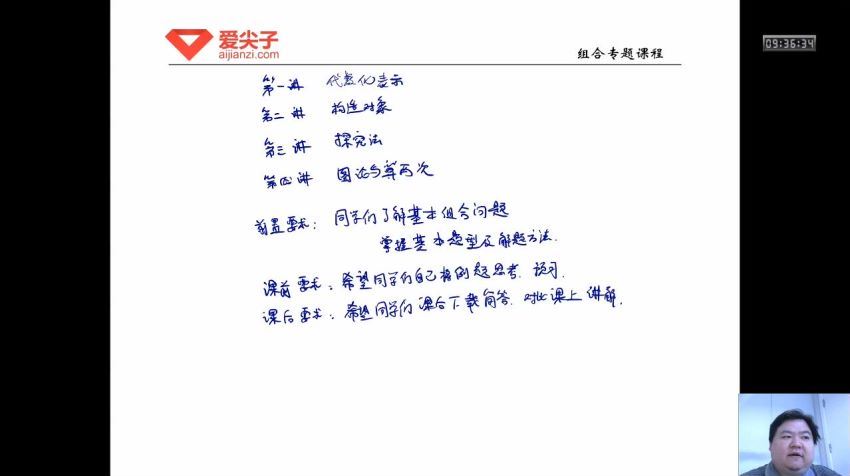 爱尖子
aijianzi.com
组合专题课程
09:36:34
第一讲 代数化表示
第二讲 构造对象
第三讲 探究法
第四讲 图论与算两次
前置要求：同学们了解基本组合问题
掌握基本题型及解题方法.
课前要求：希望同学们自己将例题思考、预习.
课后要求：希望同学们课后下载简答. 对比课上讲解.